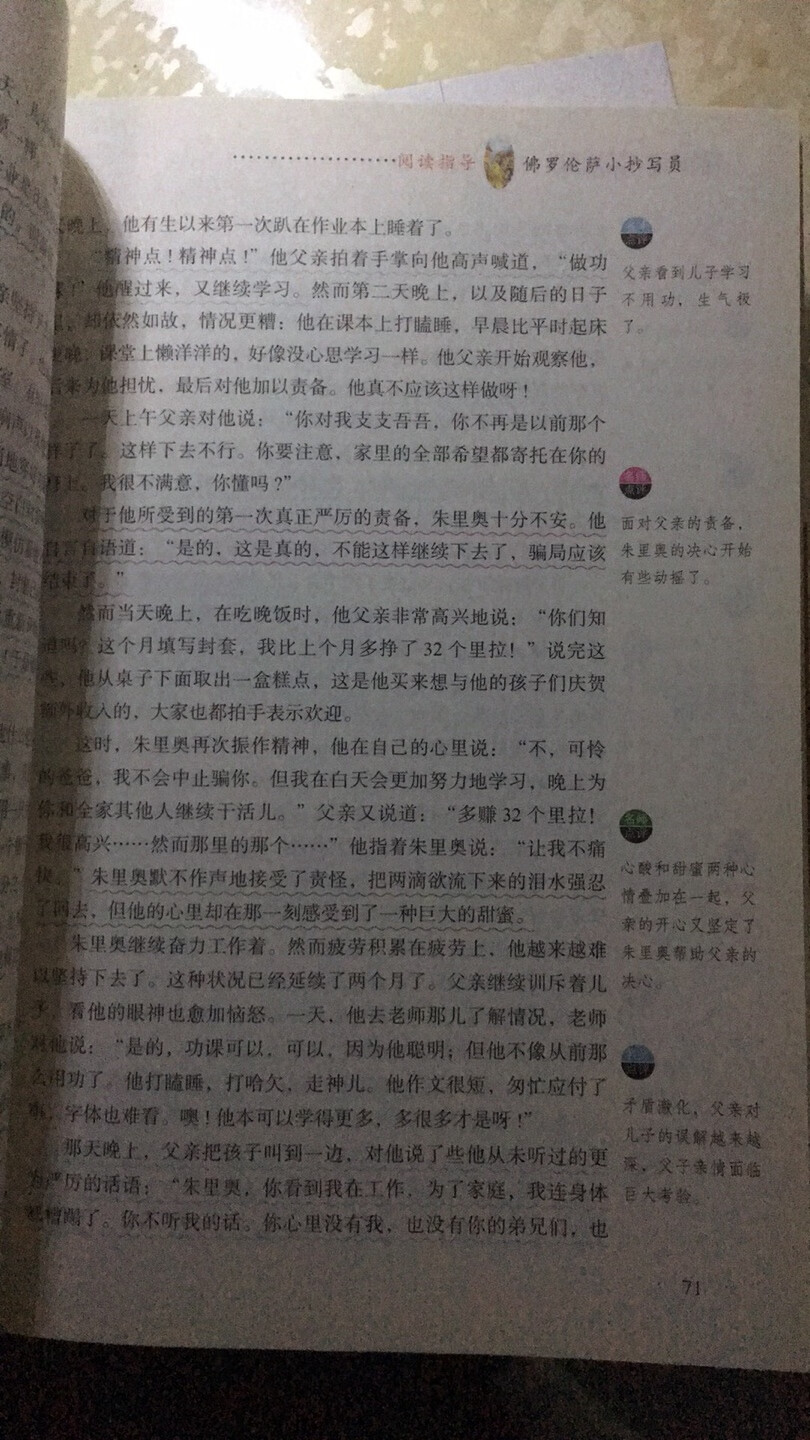 阅读指导 佛罗伦萨小抄写员
晚上，他有生以来第一次趴在作业本上睡着了。
“精神点！精神点！”他父亲拍着手掌向他高声喊道，“做功
他醒过来，又继续学习。然而第二天晚上，以及随后的日子
却依然如故，情况更糟：他在课本上打瞌睡，早晨比平时起床
晚，课堂上懒洋洋的，好像没心思学习一样。他父亲开始观察他，
来为他担忧，最后对他加以责备。他真不应该这样做呀！
一天上午父亲对他说：“你对我支支吾吾，你不再是以前那个
样子了。这样下去不行。你要注意，家里的全部希望都寄托在你的
身上。我很不满意，你懂吗？”
对于他所受到的第一次真正严厉的责备，朱里奥十分不安。他
自言自语道：“是的，这是真的，不能这样继续下去了，骗局应该
结束了。”
然而当天晚上，在吃晚饭时，他父亲非常高兴地说：“你们知
道吗？这个月填写封套，我比上个月多挣了32个里拉！”说完这
他从桌子下面取出一盒糕点，这是他买来想与他的孩子们庆贺
额外收入的，大家也都拍手表示欢迎。
这时，朱里奥再次振作精神，他在自己的心里说：“不，可怜
的爸爸，我不会中止骗你。但我在白天会更加努力地学习，晚上为
你和全家其他人继续干活儿。”父亲又说道：“多赚32个里拉！
我很高兴……然而那里的那个……”他指着朱里奥说：“让我不痛
快。”朱里奥默不作声地接受了责怪，把两滴欲流下来的泪水强忍
了回去，但他的心里却在那一刻感受到了一种巨大的甜蜜。
朱里奥继续奋力工作着。然而疲劳积累在疲劳上，他越来越难
以坚持下去了。这种状况已经延续了两个月了。父亲继续训斥着儿
子，看他的眼神也愈加恼怒。一天，他去老师那儿了解情况，老师
对他说：“是的，功课可以，可以，因为他聪明；但他不像从前那
么用功了。他打瞌睡，打哈欠，走神儿。他作文很短，匆忙应付了
事，字体也难看。噢！他本可以学得更多，多很多才是呀！”
那天晚上，父亲把孩子叫到一边，对他说了些他从未听过的更
为严厉的话语：“朱里奥，你看到我在工作，为了家庭，我连身体
都糟蹋了。你不听我的话。你心里没有我，也没有你的弟兄们，也
点评
父亲看到儿子学习
不用功，生气极
了。
名师
点评
面对父亲的责备，
朱里奥的决心开始
有些动摇了。
名师
点评
心酸和甜蜜两种心
情叠加在一起，父
亲的开心又坚定了
朱里奥帮助父亲的
决心。
矛盾激化，父亲对
儿子的误解越来越
深，父子亲情面临
巨大考验。
71